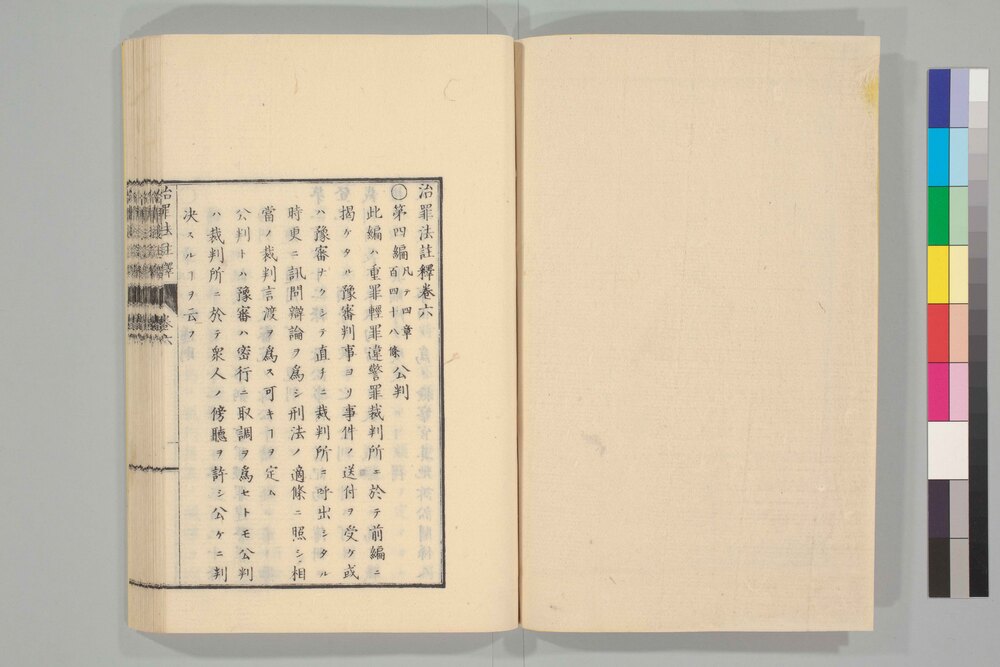 治罪法註釋卷六
〇第四編 凡テ四章 百四十八條 公判
此編ハ重罪輕罪違警罪裁判所ニ於テ前編ニ
揭ケタル豫審判事ヨリ事件ノ送付ヲ受ケ或
ハ豫審ナクシテ直チニ裁判所ニ呼出シタル
時更ニ訊問辯論ヲ爲シ刑法ノ適條ニ照シ相
當ノ裁判言渡ヲ爲ス可キヿヲ定ム
公判トハ豫審ハ密行ニ取調ヲ爲セトモ公判
ハ裁判所ニ於テ衆人ノ傍聽ヲ許シ公ケニ判
决スルヿヲ云フ
治罪法註釋 卷六
一